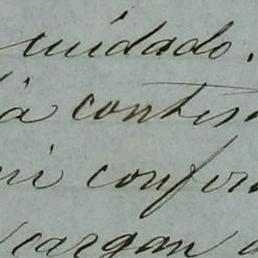 cuidado.
a contes
mi confer
cargan a